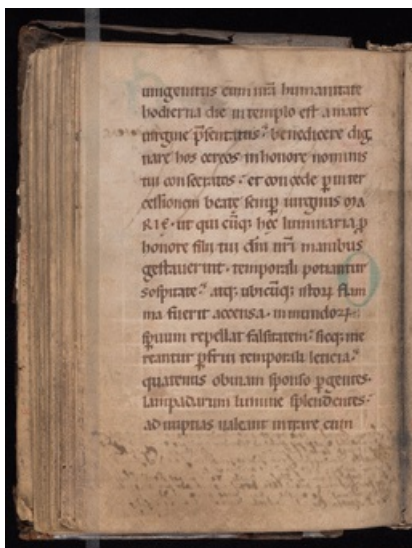 unigenitus cum nr̃a humanitate
hodierna die in templo est a matre
uirgine p̃sentatus. benedicere dig
nare hos cereos in honore nominis
tui consecratos. et concede p̱ inter
cessionem beate semp̱ uirginis MA
RIĘ. ut qui cũq; hęc luminaria p̱
honore filii tui dñi nr̃i manibus
gestauerint. temporali potiantur
sospitate. atq; ubicũq; istoꝝ flam
ma fuerit accensa. inmundoꝝ
sp̃uum repellat falsitatem. sicq; me
reantur p̱frui temporali leticia.
quatenus obuiam sponso p̱gentes.
lampadarum lumine splendentes.
ad nuptias ualeant intrare cum